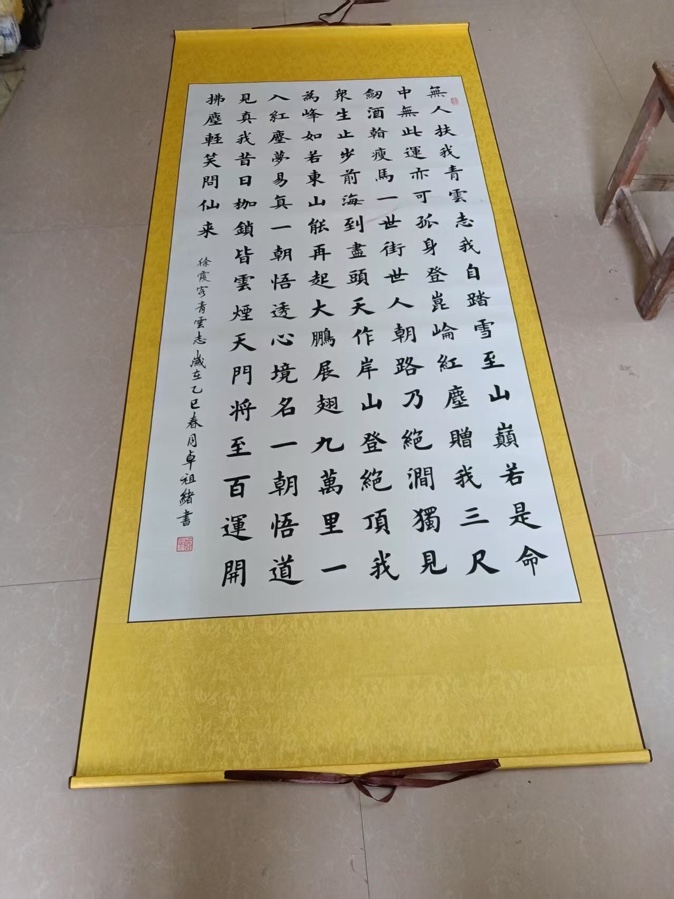 無人扶我青雲志我自踏雪至山巔若是命
中無此運亦可孤身登崑崙紅塵贈我三尺
劒酒翰瘦馬一世街世人朝路乃絕澗獨見
衆生止步前海到盡頭天作岸山登絕頂我
為峰如若東山能再起大鵬展翅九萬里一
入紅塵夢易真一朝悟透心境名一朝悟道
見真我昔日枷鎖皆雲煙天門将至百運開
拂塵輕笑問仙来
徐霞客青雲志歲在乙巳春月卓祖緒書